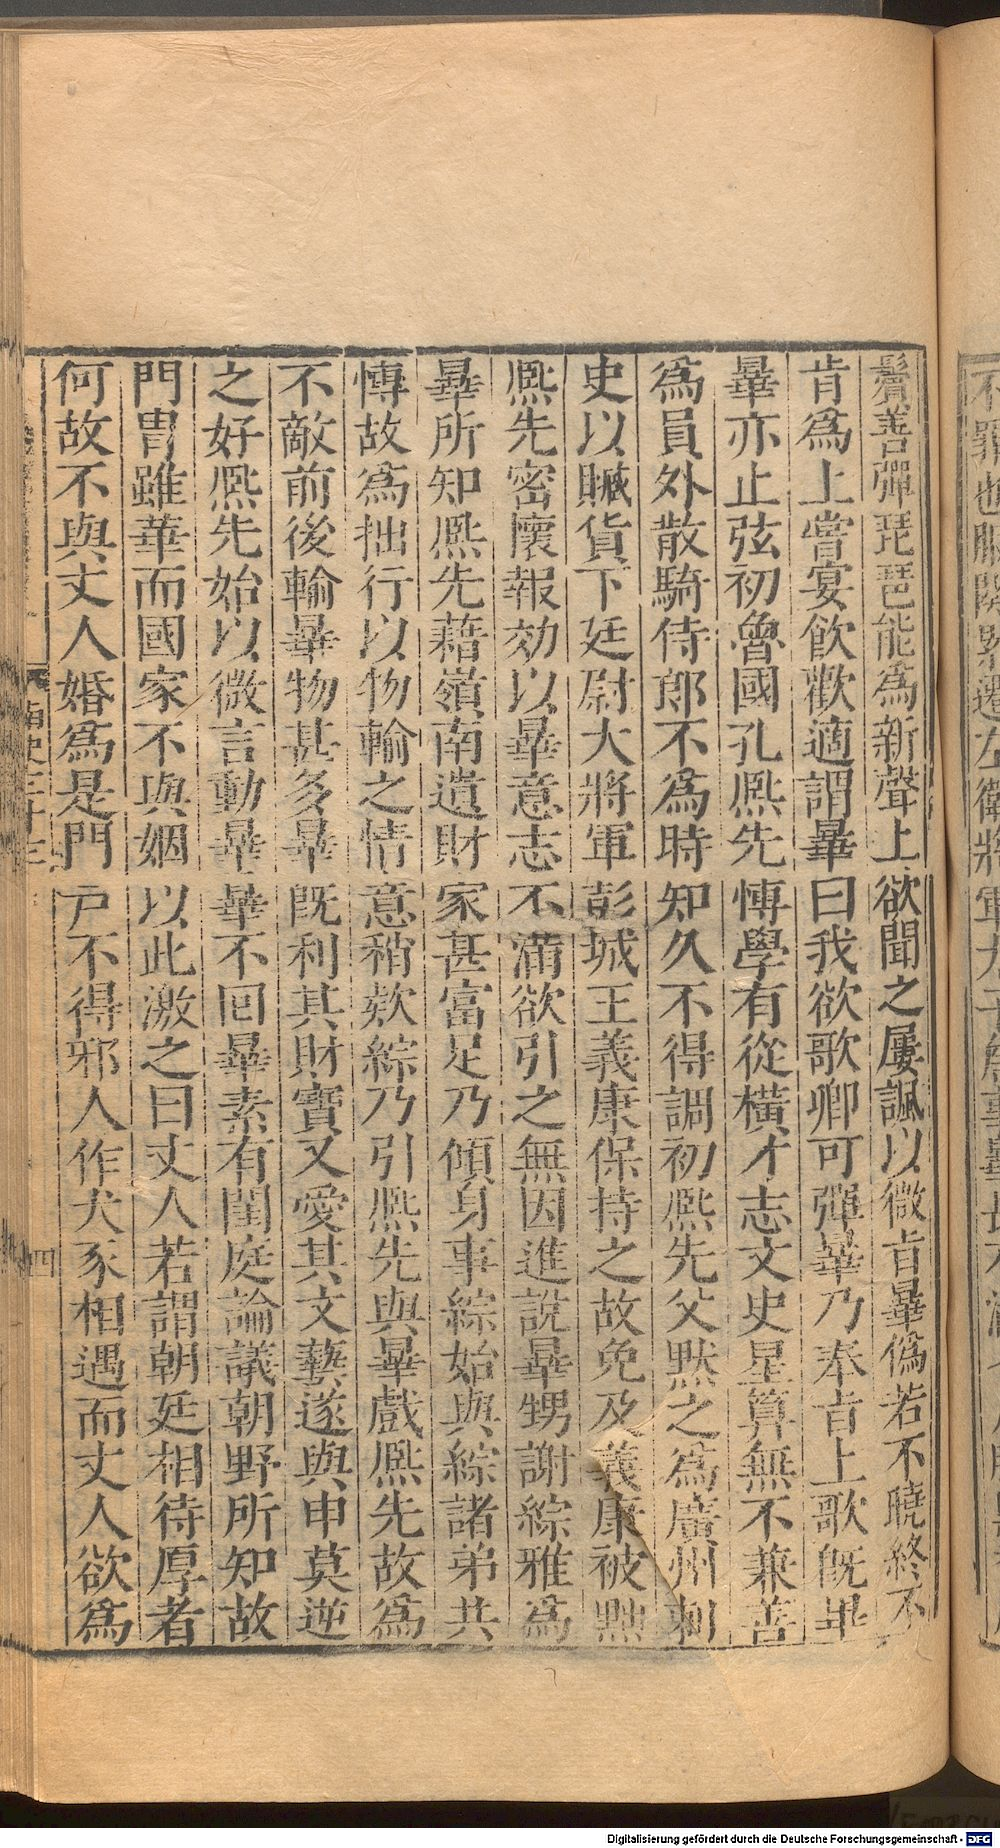 鬢善彈琵琶能爲新聲上欲聞之屢諷以微旨曅僞若不曉終不
肯爲上嘗宴飲歡適謂曅曰我欲歌卿可彈曅乃奉旨上歌旣畢
曅亦止弦初魯國孔熈先愽學有從橫才志文史星算無不兼善
爲員外散騎侍郎不爲時知久不得調初熈先父默之爲廣州刺
史以贓貨下廷尉大將軍彭城王義康保持之故免及義康被黜
熈先密懷報効以曅意志不滿欲引之無因進說曅甥謝綜雅爲
曅所知熈先藉嶺南遺財家甚富足乃傾身事綜始與綜諸弟共
愽故爲拙行以物輸之情意稍欵綜乃引熈先與曅戲熈先故爲
不敵前後輸曅物甚多曅旣利其財寶又愛其文藝遂與申莫逆
之好熈先始以微言動曅曅不囘曅素有閨庭論議朝野所知故
門胄雖華而國家不與姻以此激之曰丈人若謂朝廷相待厚者
何故不與丈人婚爲是門戸不得邪人作犬豕相遇而丈人欲爲
南史三十三
四
Digitalisierung gefördert durch die Deutsche Forschungsgemeinschaft - DFG